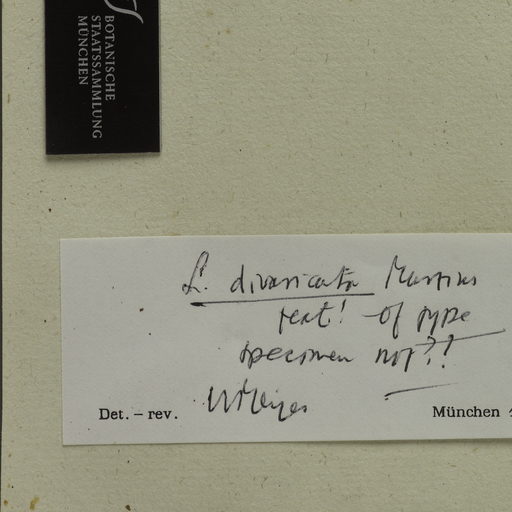 BOTANISCHE
STAATSSAMMLUNG
MÜNCHEN
L. divaricata Martius
text! of type
specimen not??
Det. – rev.
München